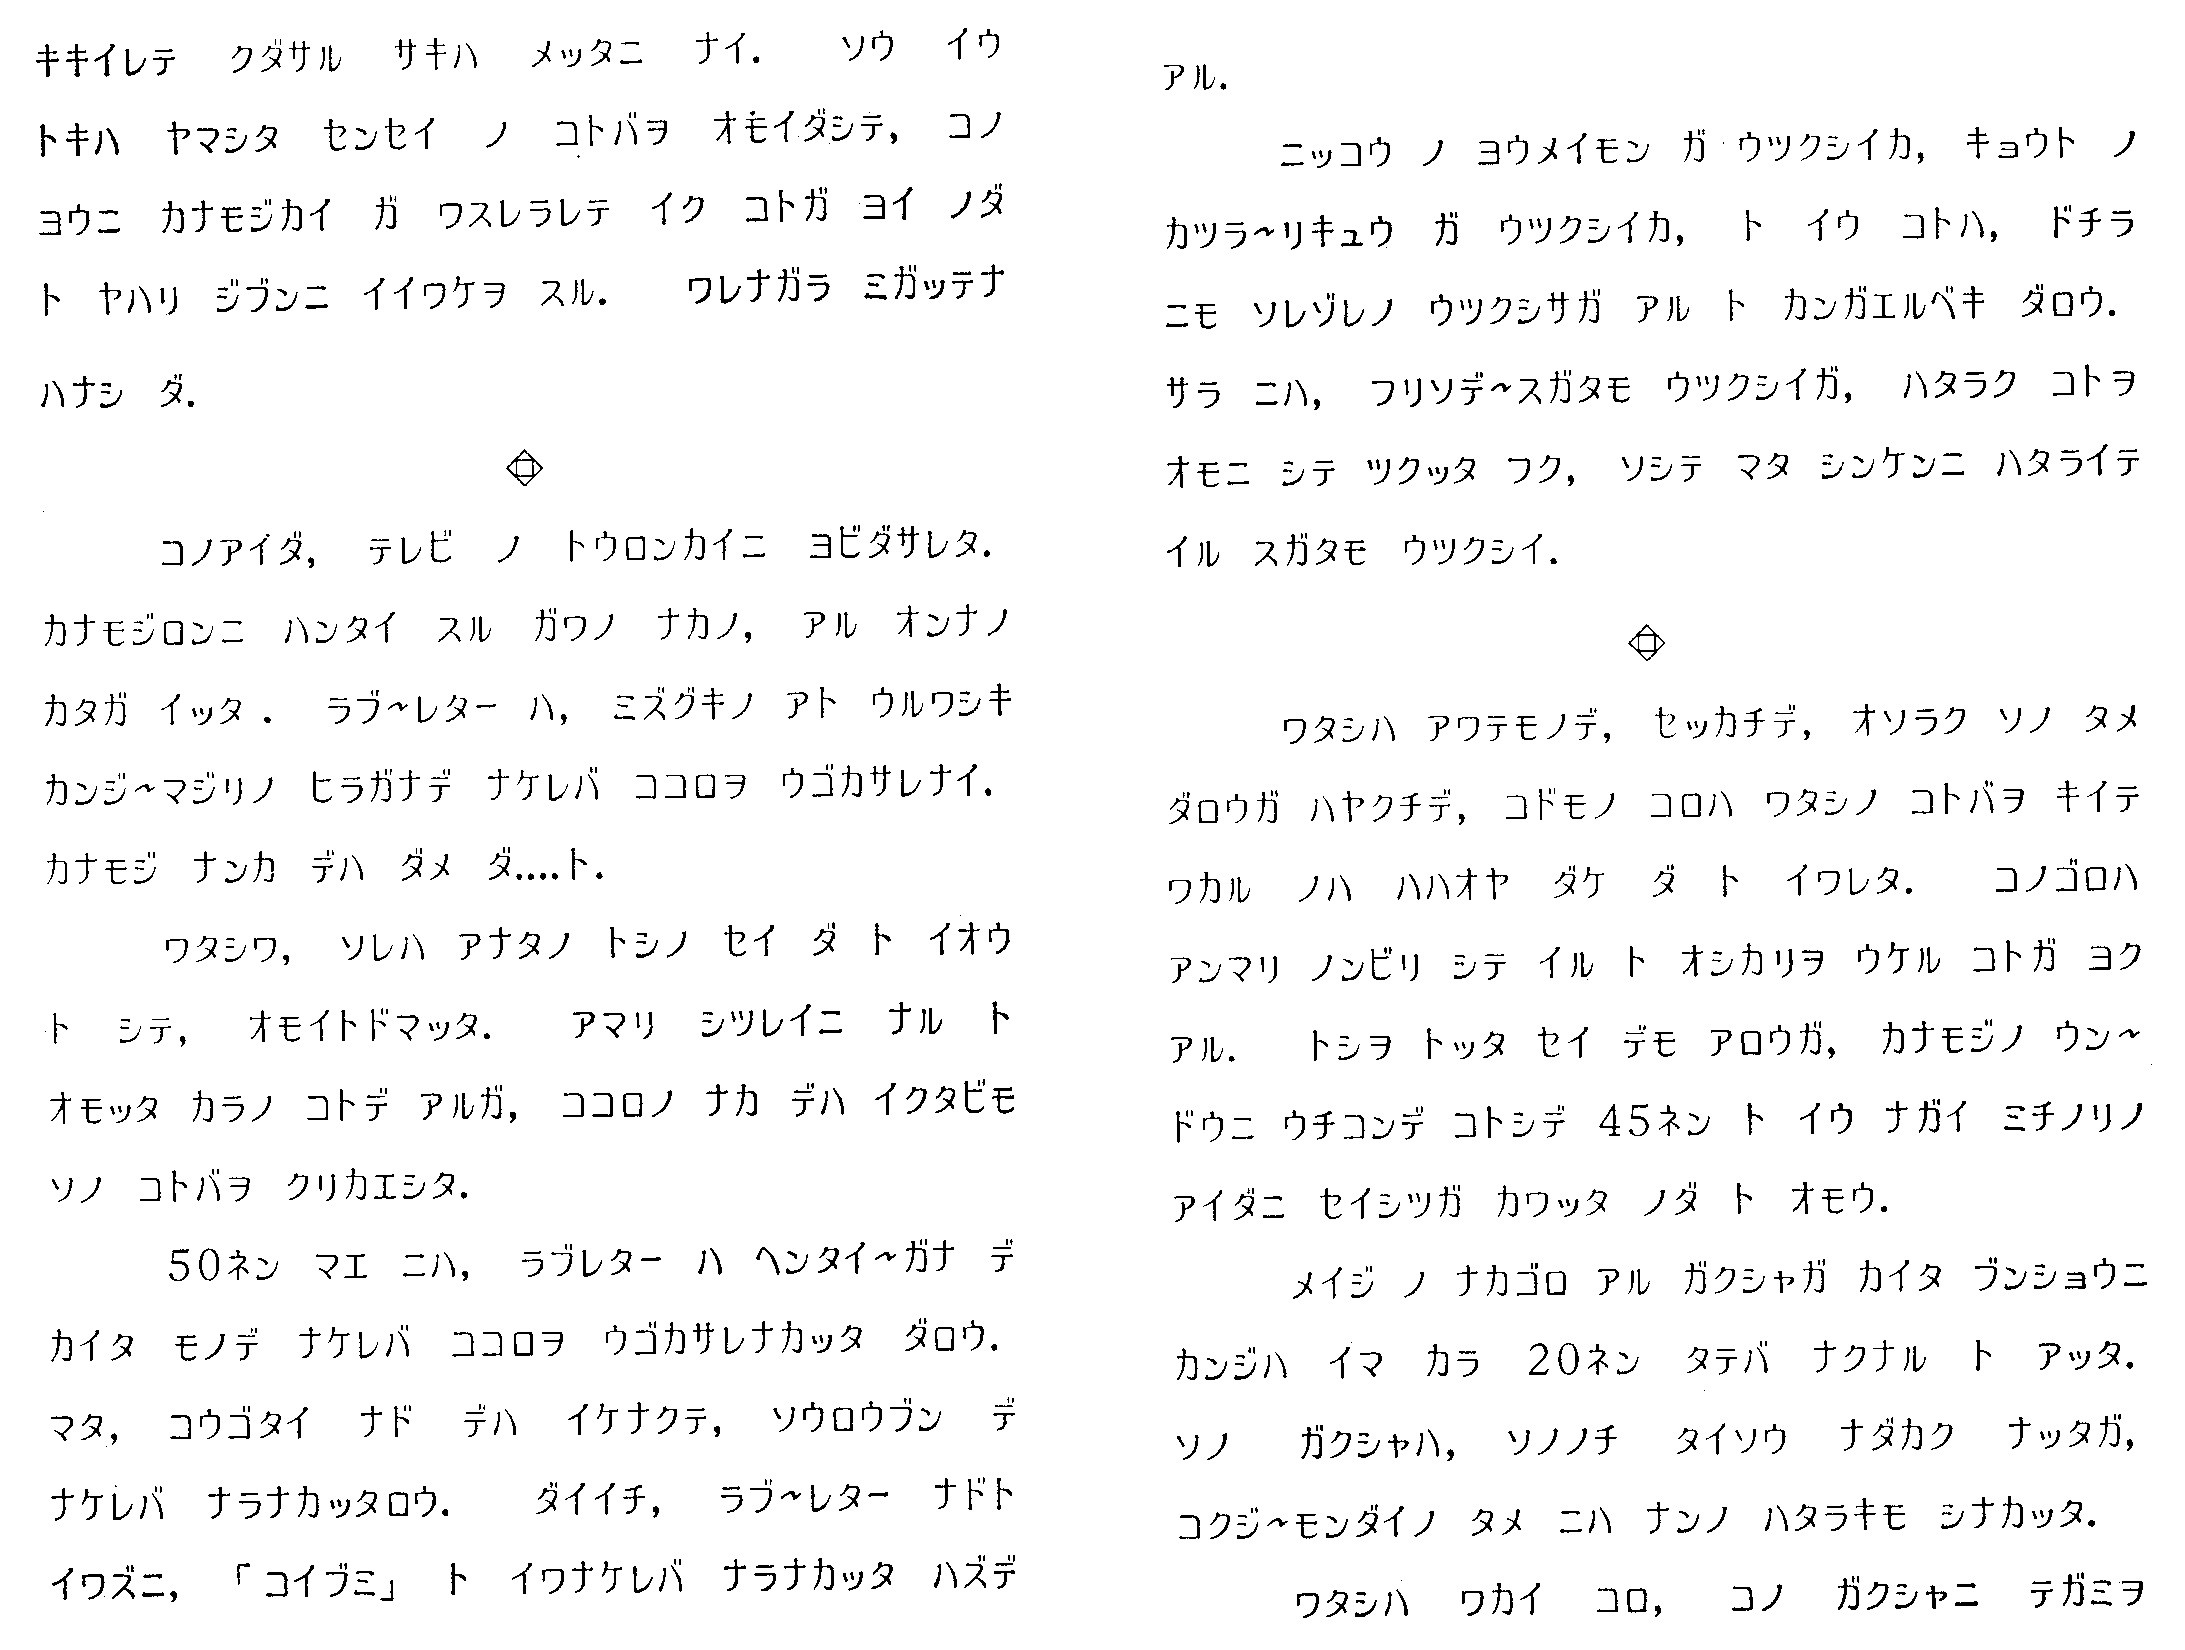 キキイレテ クダサル サキハ メッタニ ナイ. ソウ イウ
トキハ ヤマシタ センセイ ノ コトバヲ オモイダシテ, コノ
ヨウニ カナモジカイ ガ ワスレラレテ イク コトガ ヨイ ノダ
ト ヤハリ ジブンニ イイワケヲ スル. ワレナガラ ミガッテナ
ハナシ ダ.
コノアイダ, テレビ ノ トウロンカイニ ヨビダサレタ.
カナモジロンニ ハンタイ スル ガワノ ナカノ, アル オンナノ
カタガ イッタ. ラブ~レター ハ, ミズグキノ アト ウルワシキ
カンジ~マジリノ ヒラガナデ ナケレバ ココロヲ ウゴカサレナイ.
カナモジ ナンカ デハ ダメ ダ....ト.
ワタシワ, ソレハ アナタノ トシノ セイ ダ ト イオウ
ト シテ, オモイトドマッタ. アマリ シツレイニ ナル ト
オモッタ カラノ コトデ アルガ, ココロノ ナカ デハ イクタビモ
ソノ コトバヲ クリカエシタ.
50ネン マエ ニハ, ラブレター ハ ヘンタイ~ガナ デ
カイタ モノデ ナケレバ ココロヲ ウゴカサレナカッタ ダロウ.
マタ, コウゴタイ ナド デハ イケナクテ, ソウロウブン デ
ナケレバ ナラナカッタロウ. ダイイチ, ラブ~レター ナドト
イワズニ, 「コイブミ」 ト イワナケレバ ナラナカッタ ハズデ
アル.
ニッコウ ノ ヨウメイモン ガ ウツクシイカ, キョウト ノ
カツラ~リキュウ ガ ウツクシイカ, ト イウ コトハ, ドチラ
ニモ ソレゾレノ ウツクシサガ アル ト カンガエルベキ ダロウ.
サラ ニハ, フリソデ~スガタモ ウツクシイガ, ハタラク コトヲ
オモニ シテ ツクッタ フク, ソシテ マタ シンケンニ ハタライテ
イル スガタモ ウツクシイ.
ワタシハ アワテモノデ, セッカチデ, オソラク ソノ タメ
ダロウガ ハヤクチデ, コドモノ コロハ ワタシノ コトバヲ キイテ
ワカル ノハ ハハオヤ ダケ ダ ト イワレタ. コノゴロハ
アンマリ ノンビリ シテ イル ト オシカリヲ ウケル コトガ ヨク
アル. トシヲ トッタ セイ デモ アロウガ, カナモジノ ウン~
ドウニ ウチコンデ コトシデ 45ネン ト イウ ナガイ ミチノリノ
アイダニ セイシツガ カワッタ ノダ ト オモウ.
メイジ ノ ナカゴロ アル ガクシャガ カイタ ブンショウニ
カンジハ イマ カラ 20ネン タテバ ナクナル ト アッタ.
ソノ ガクシャハ, ソノノチ タイソウ ナダカク ナッタガ,
コクジ~モンダイノ タメ ニハ ナンノ ハタラキモ シナカッタ.
ワタシハ ワカイ コロ, コノ ガクシャニ テガミヲ